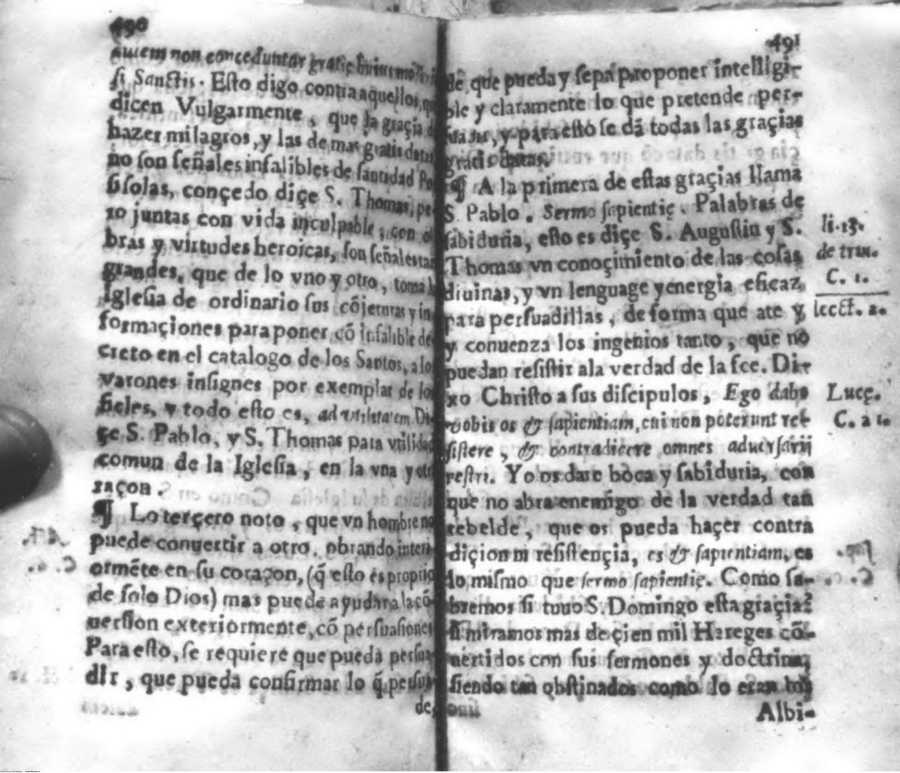 490
quiem non conceduntur gratię
si Sanctis. Esto digo contra aquellos, que
dicen Vulgarmente, que la graçia de
hazer milagros, y las de mas gratis datas
no son señales infalibles de santidad Por
si solas, conçedo diçe S. Thomas, pe-
ro juntas con vida inculpable, con o-
bras y virtudes heroicas, son señales tan
grandes, que de lo vno y otro, toma la
Iglesia de ordinario sus cõjeturas y in-
formaçiones para poner cõ infalible de-
creto en el catalogo de los Santos, a los
varones insignes por exemplar de los
fieles, y todo esto es, ad vtilitatem Di-
çe S. Pablo, y S. Thomas para vtilidad
comun de la Iglesia, en la vna y otra
raçon.
¶ Lo terçero noto, que vn hombre no
puede conuertir a otro, obrando interi-
ormẽte en su coraçon, (q̃ esto es proprio
de solo Dios) mas puede ayudar a la cõ-
uersion exteriormente, cõ persuasiones
Para esto, se requiere que pueda persua-
dir, que pueda confirmar lo q̃ persua-
de,
491
de, que pueda y sepa proponer intelligi-
ble y claramente lo que pretende per-
suadir, y para esto se dã todas las graçias
gratis datas.
¶ A la primera de estas graçias llama
S. Pablo. Sermo sapientię. Palabras de
sabiduria, esto es diçe S. Augustin y S.
Thomas vn conoçimiento de las cosas
diuinas, y vn lenguage y energia eficaz,
para persuadillas, de forma que ate y
y conuenza los ingenios tanto, que no
puedan resistir a la verdad de la fee. Di-
xo Christo a sus discipulos, Ego dabo
vobis os & sapientiam, cui non poterunt re-
sistere, & contradicere omnes aduersarij
vestri. Yo os dare boca y sabiduria, con
que no abra enemigo de la verdad tan
rebelde, que os pueda haçer contra
diçion ni resistençia, os & sapientiam, es
lo mismo que sermo sapientię. Como sa-
bremos si tuuo S. Domingo esta graçia?
si miramos mas de çien mil Hereges cõ-
uertidos con sus sermones y doctrina,
siendo tan obstinados como lo eran los
Albi-
li. 13.
de trin.
C. 1.
lecct. 2.
Lucę.
C. 21.